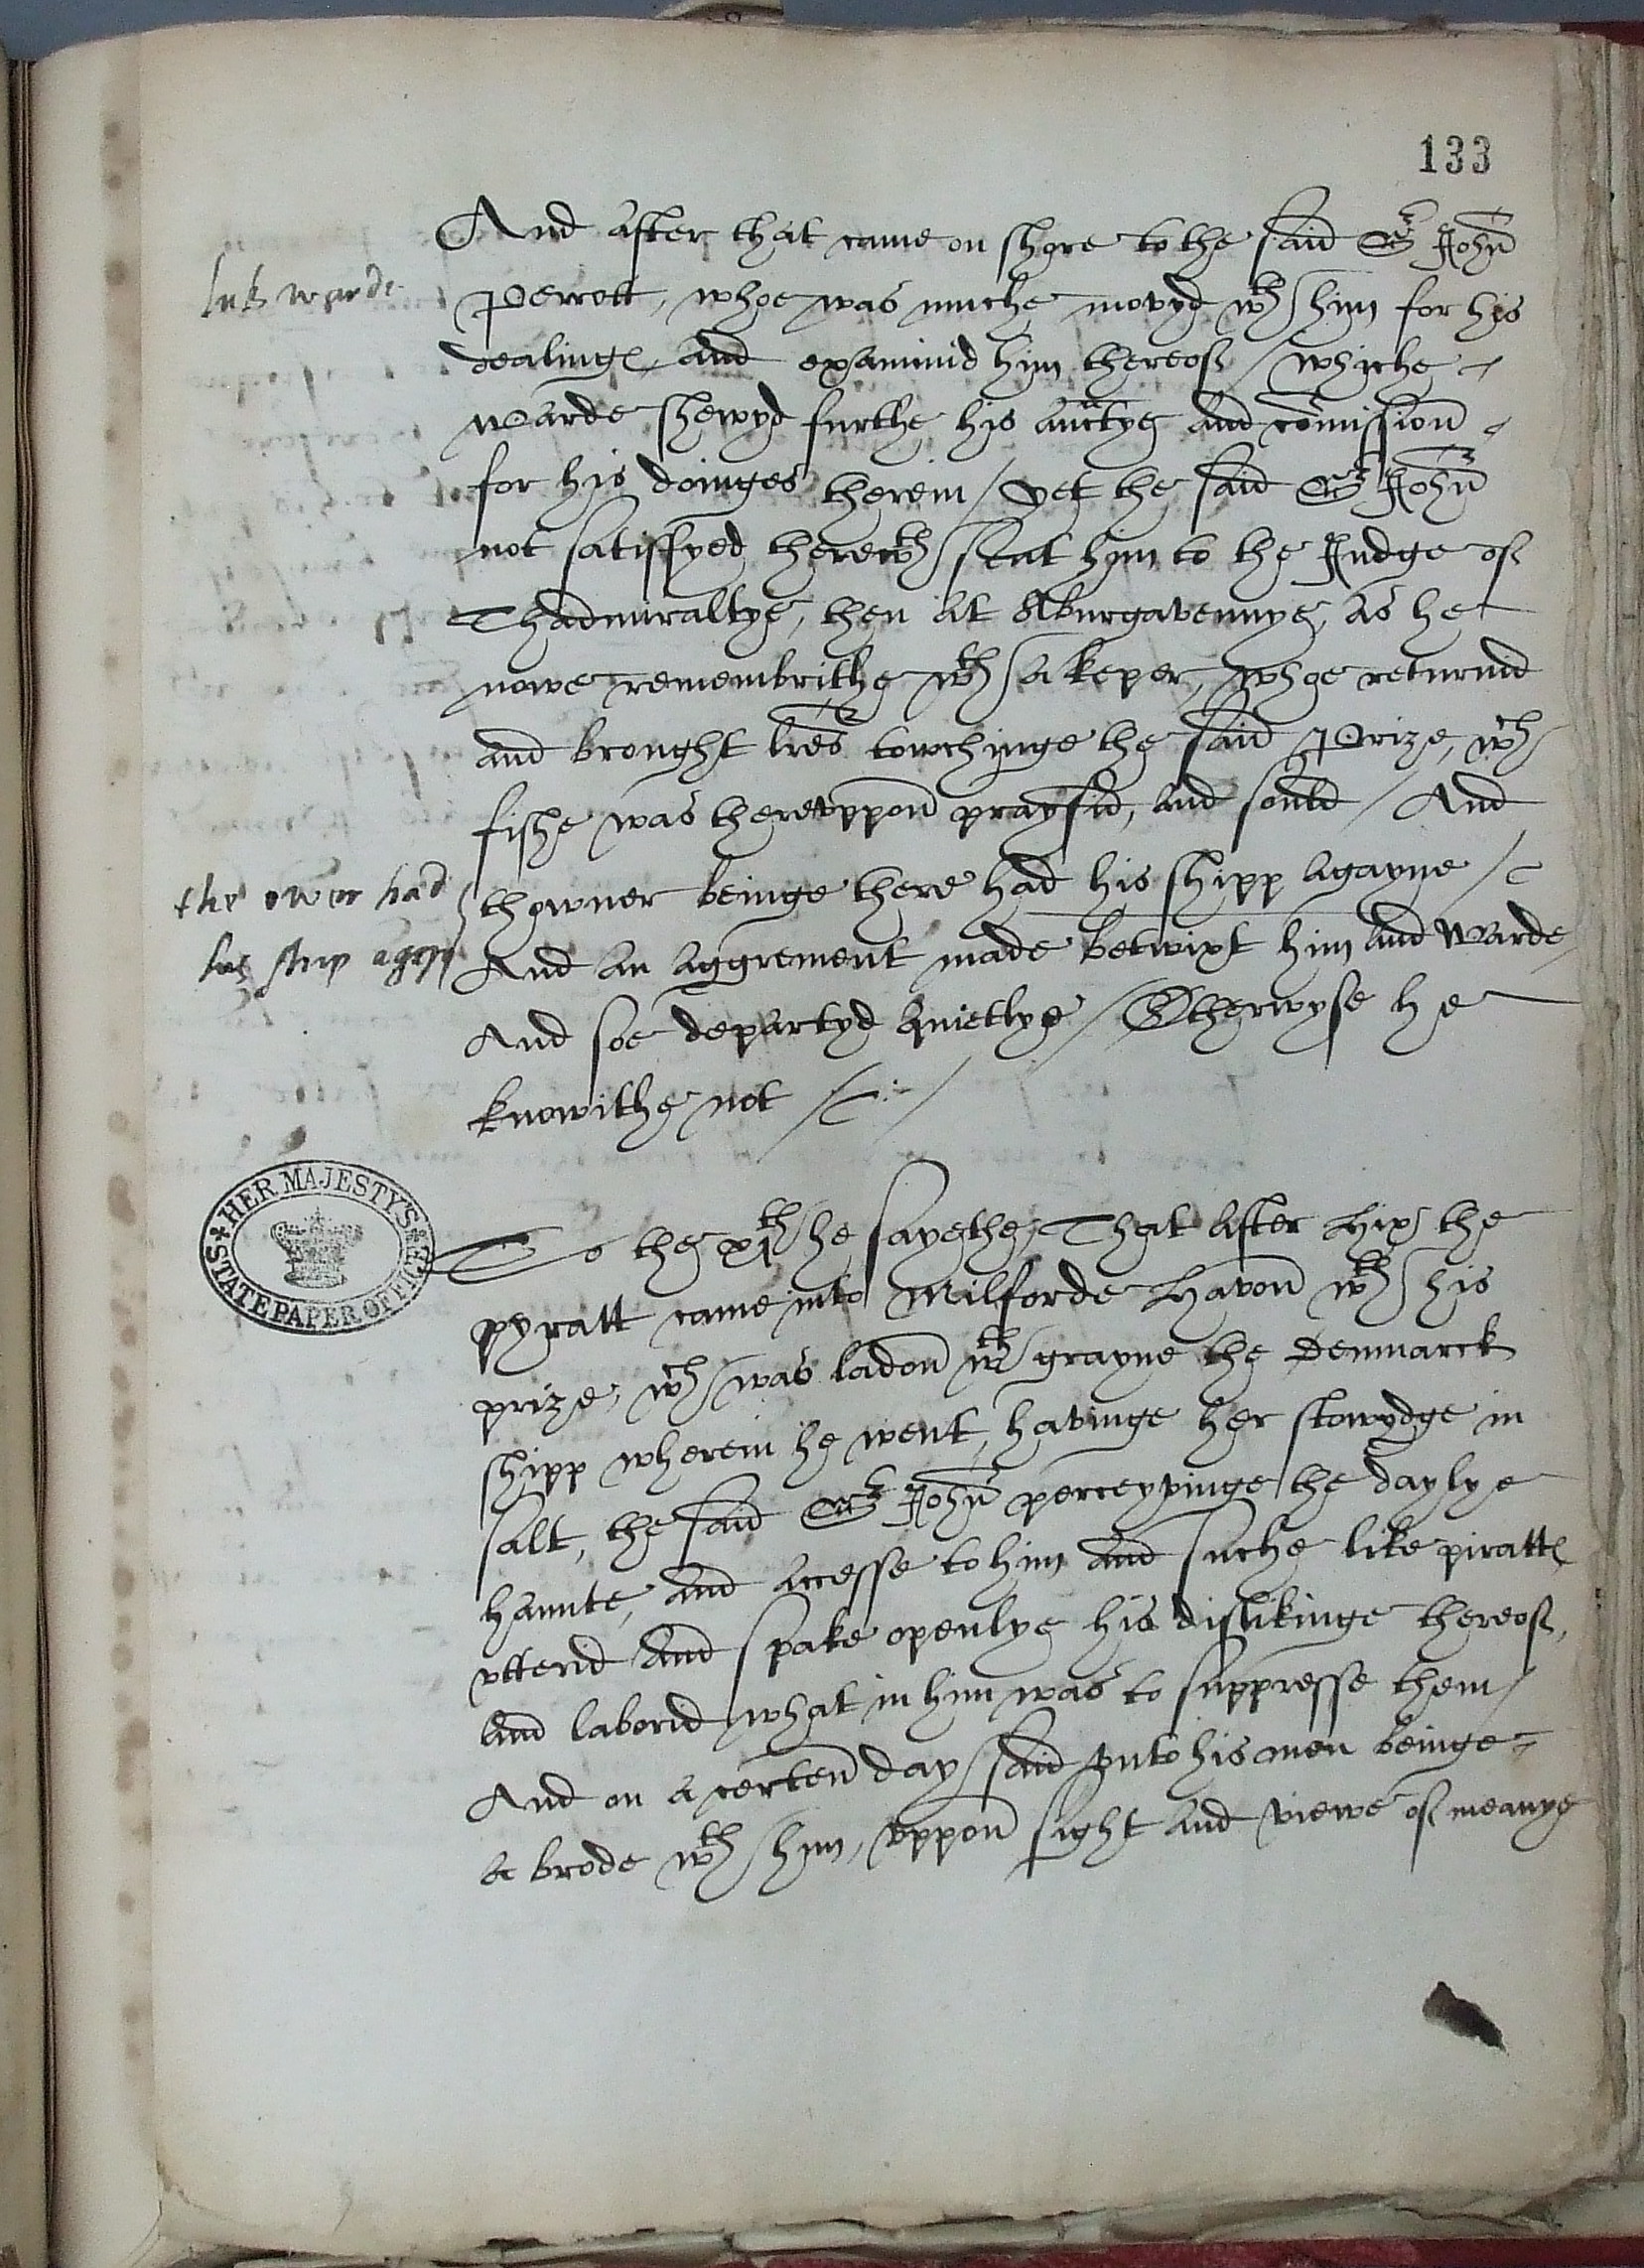 133
And after that came on shore to the said Sr John
luk warde
Perrott, whoe was muche movyd wth him for his
dealinges, and examinid him thereof / whiche
Warde shewyd furthe his auctye and comission
for his doinges therein / yet the said Sr John
not satisfyed therewth sent him to the Judge of
Thadmiraltye, then at Aburgavennye, as he
nowe remembrithe wth a keper, whoe returnid
and brought lres towchinge the said Prize, wch
fishe was thereuppon praysid, and sould / And
the owner had
thowner beinge there had his shipp agayne /
his ship agayn
And an aggrement made betwixt him and Warde /
And soe departyd quietlye / Otherwyse he
knowithe not /
HER MAJESTY'S STATE PAPER OFFICE
To the xjth he sayethe, That after Hix the
pyratt came into Milforde Havon wth his
prize, wch was ladon wth grayne the Denmarck
shipp wherein he went, havinge her stowydge in
salt, the said Sr John perceyvinge the daylye
haunte, and accesse to him and suche like piratts
vtterid and spake openlye his dislikinge thereof,
and laborid what in him was to suppresse them /
And on a certen day said vnto his men beinge
a brode wth him, vppon sight and viewe of meanye